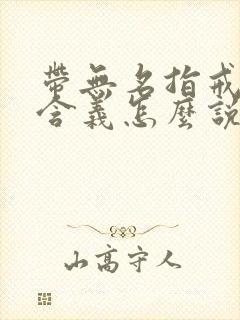 帶無名指戒
含義怎麼說
山高守人